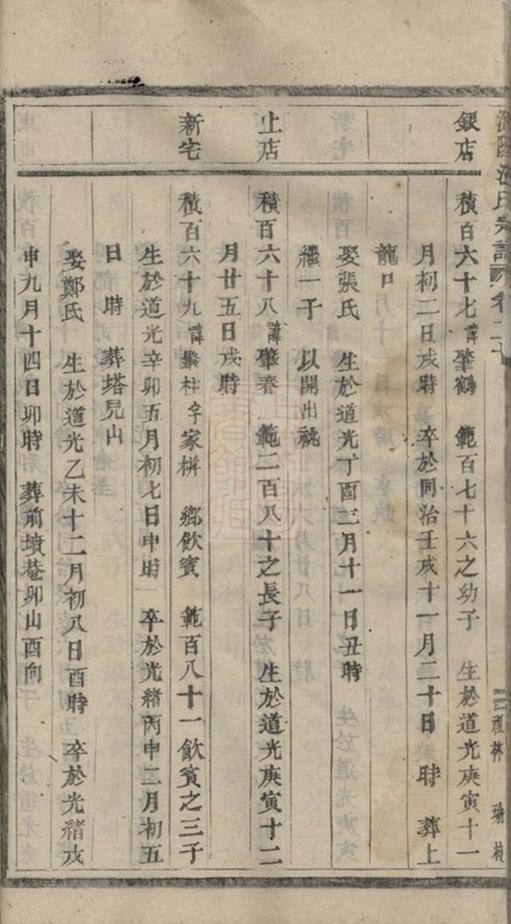 氏宗譜 卷二十
銀店
積百六十七諱肇鶴 範百七十六之幼子 生於道光庚寅十一
月初二日戌時 卒於同治壬戌十一月二十日 時 葬上
龍口
娶張氏 生於道光丁酉三月十一日丑時
繼一子 以開出祧
上店
積百六十八諱肇春 範二百八十之長子 生於道光庚寅十二
月廿五日戌時
新宅
積百六十九諱肇柱字家栟 鄉飲賓 範百八十一飲賓之三子
生於道光辛卯五月初七日申時 卒於光緒丙申二月初五
日 時 葬塔兒山
娶鄭氏 生於道光乙未十二月初八日酉時 卒於光緒戊
申九月十四日卯時 葬前墳菴卯山酉向